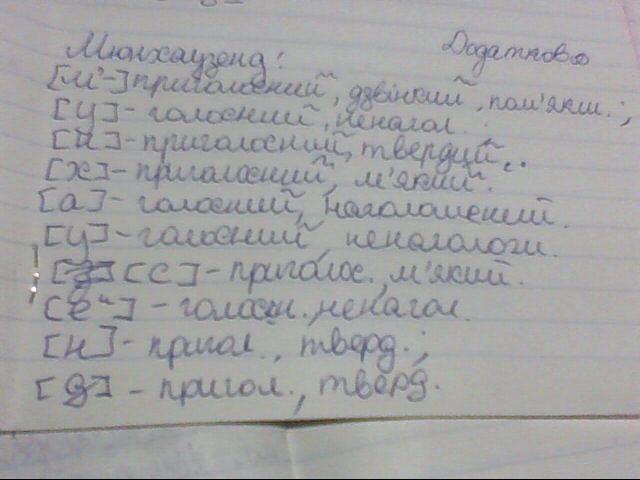 Мюнхаузенд: Додатково
[м'-] приголосний, дзвінкий, пом'якш.;
[у] - голосний, ненагол.
[н] - приголосний, твердий.
[х] - приголосний, м'який.
[а] - голосний, наголошений.
[у] - голосний, ненаголош.
[с] - приголос., м'який.
[еи] - голосн. ненагол.
[н] - пригол., тверд.;
[д] - пригол., тверд.